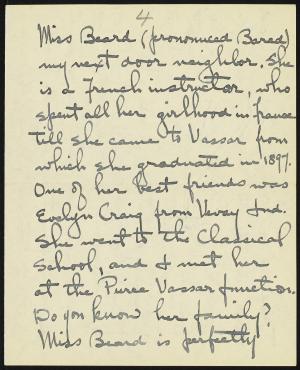 4
Miss Beard (pronounced Bared)
my next door neighbor. She
is a French instructor, who
spent all her girlhood in France
till she came to Vassar from
which she graduated in 1897.
One of her best friends was
Evelyn Craig from Vevay Ind.
She went to the Classical
School, and I met her
at the Pierce Vassar function.
Do you know her family?
Miss Beard is perfectly